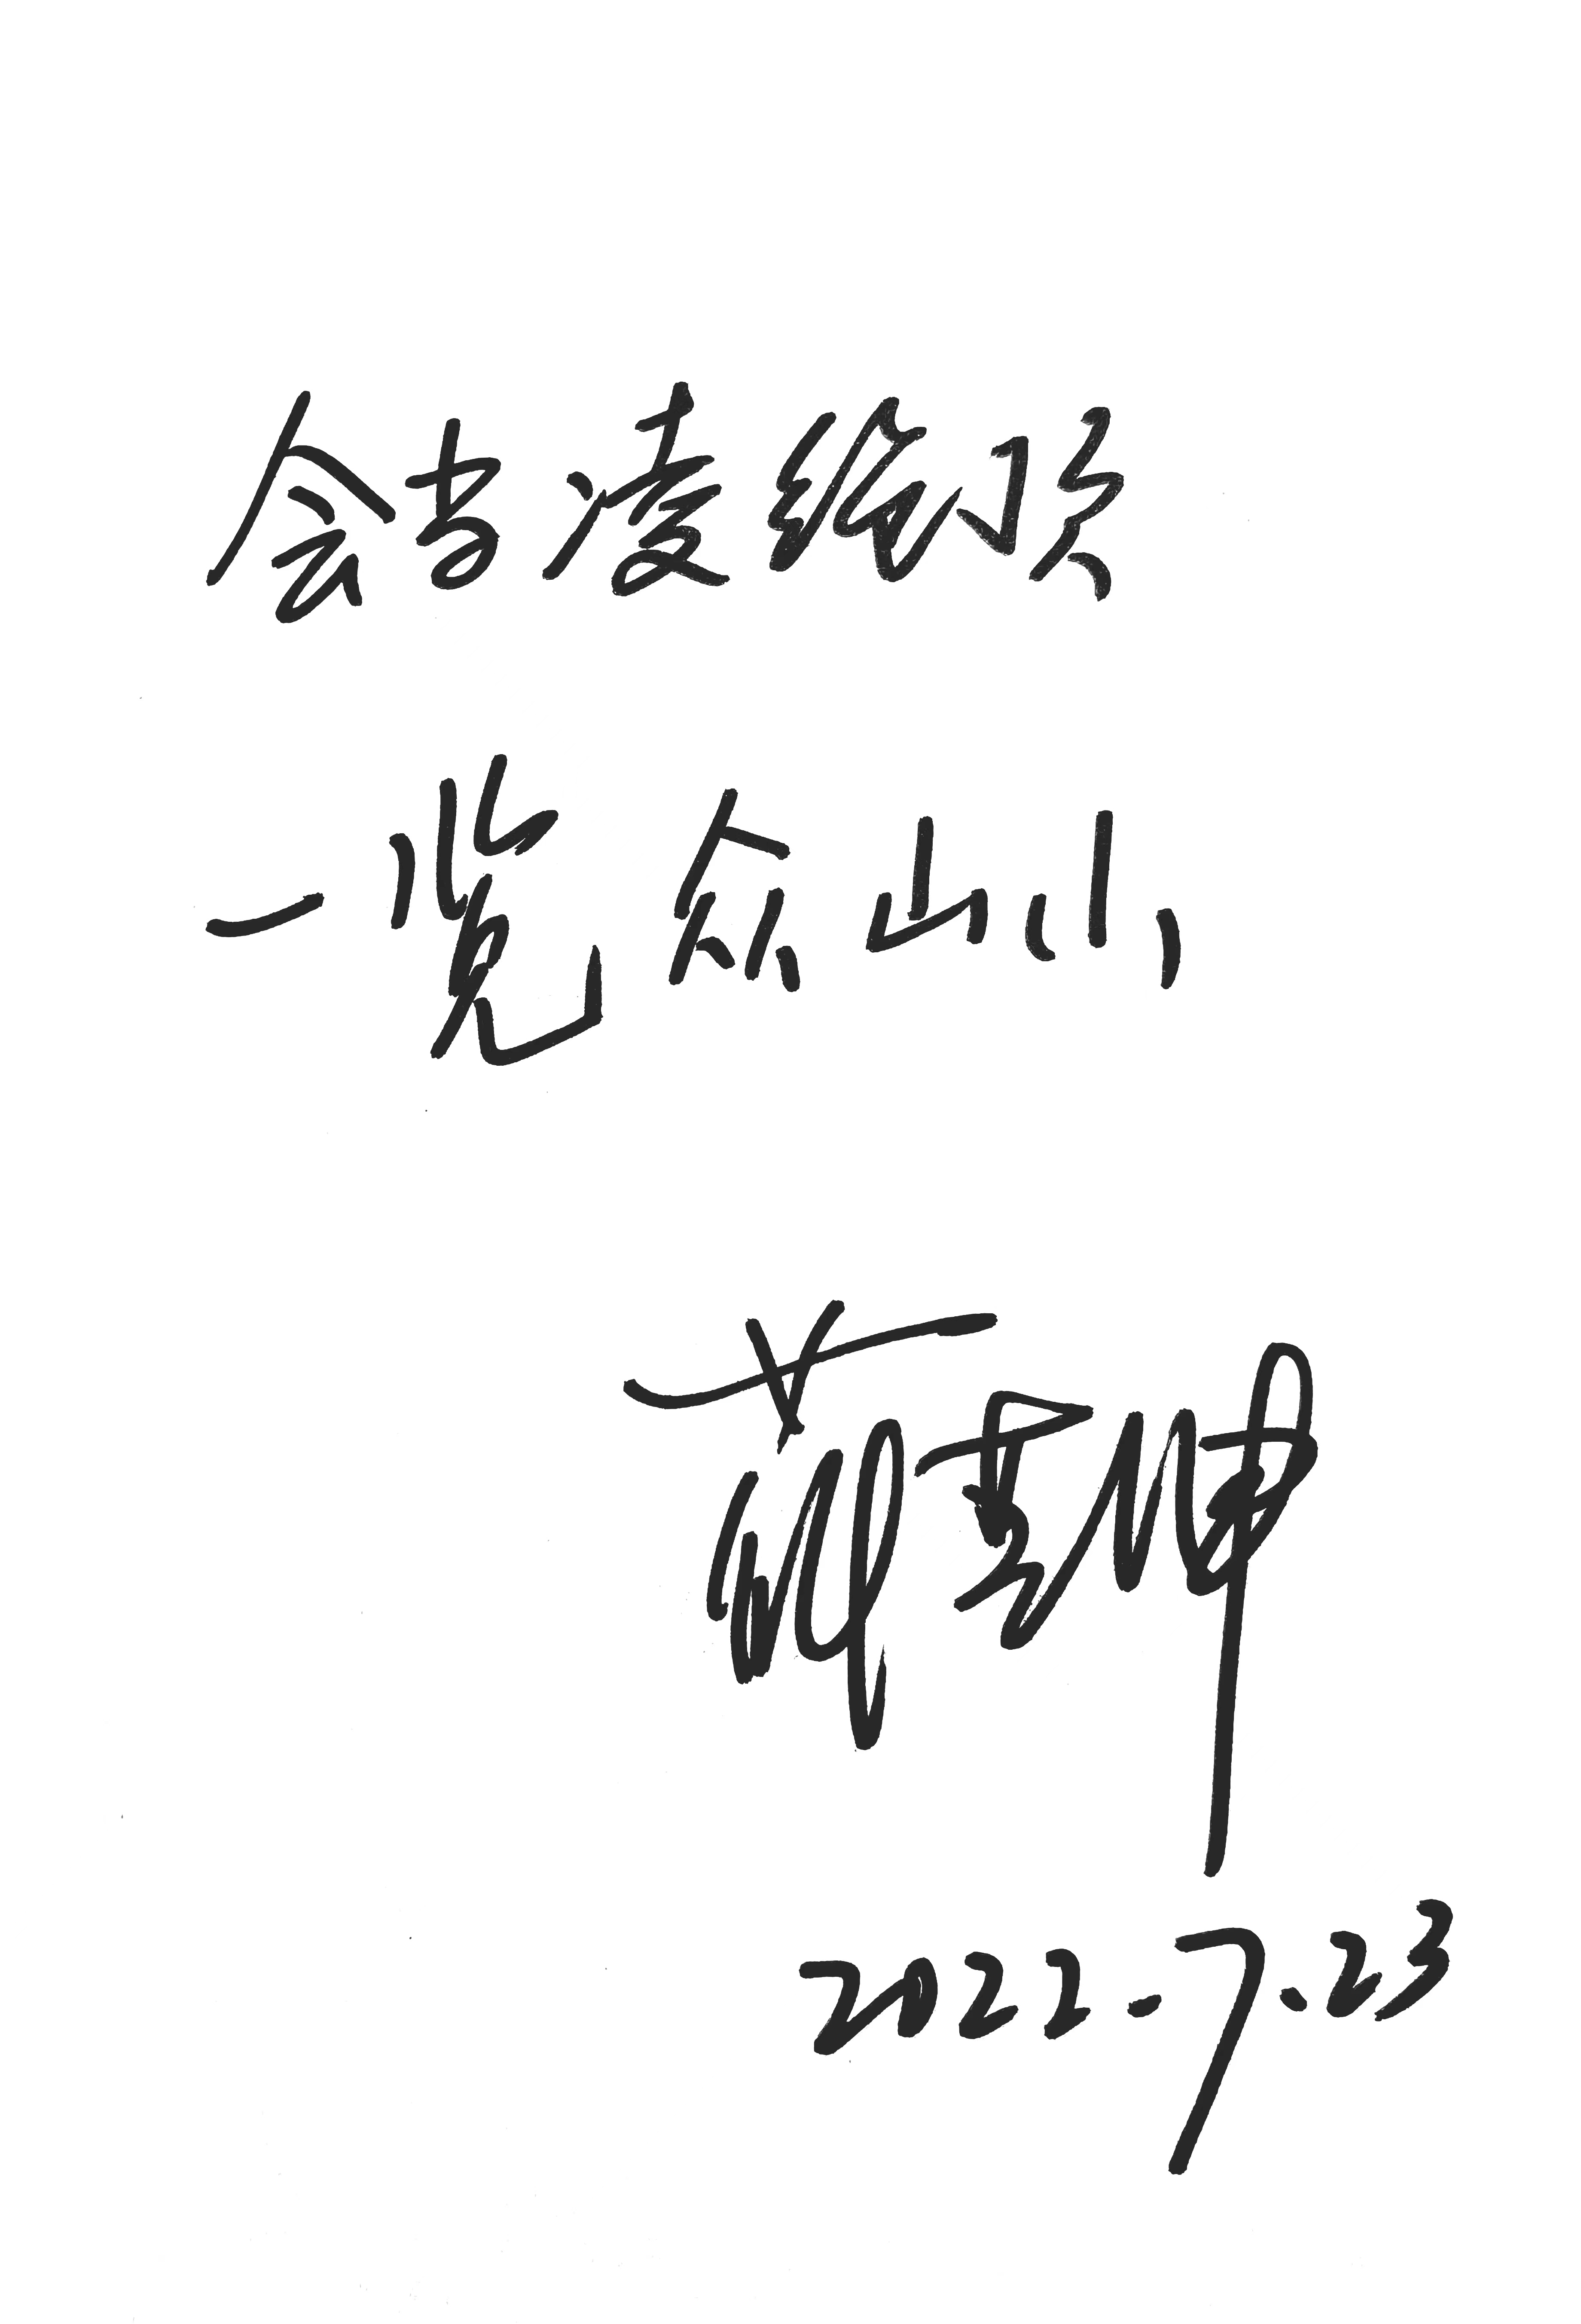 会当凌绝顶
一览众山小
2022.7.23